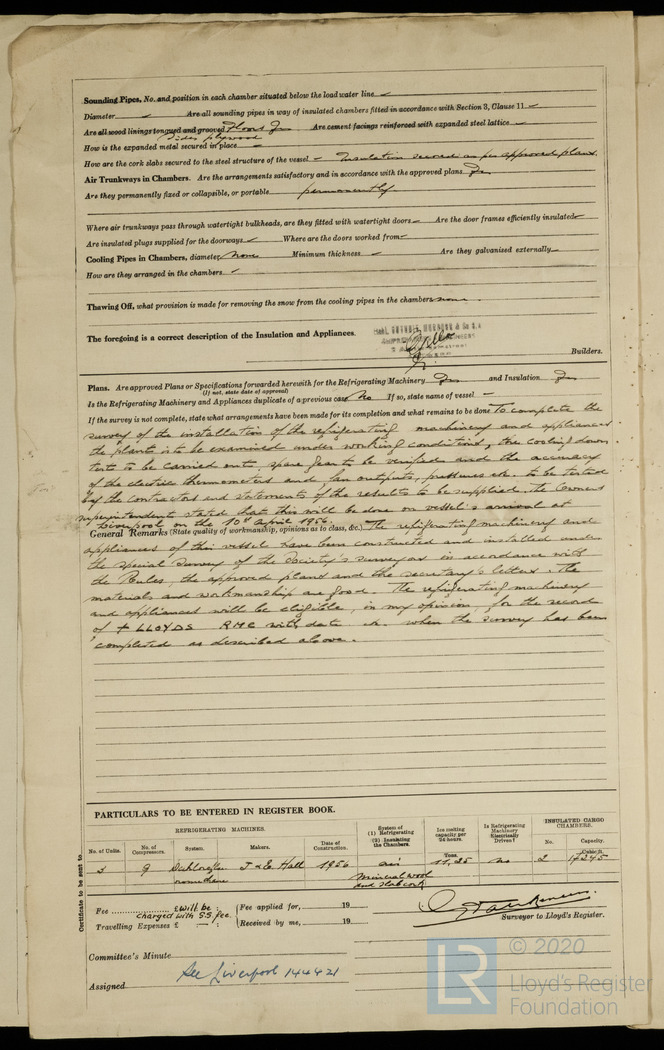 Sounding Pipes, No. and position in each chamber situated below the load water line ✓
Diameter ✓ Are all sounding pipes in way of insulated chambers fitted in accordance with Section 3, Clause 11 ✓
Are all wood linings tongued and grooved Floors Yes Are cement facings reinforced with expanded steel lattice ✓
Sides plywood
How is the expanded metal secured in place ✓
How are the cork slabs secured to the steel structure of the vessel – Insulation secured as per approved plans
Air Trunkways in Chambers. Are the arrangements satisfactory and in accordance with the approved plans Yes
Are they permanently fixed or collapsible, or portable permanently
Where air trunkways pass through watertight bulkheads, are they fitted with watertight doors – Are the door frames efficiently insulated –
Are insulated plugs supplied for the doorways ✓ Where are the doors worked from –
Cooling Pipes in Chambers, diameter, None Minimum thickness – Are they galvanized externally –
How are they arranged in the chambers ✓
Thawing Off, what provision is made for removing the snow from the cooling pipes in the chambers none.
The foregoing is a correct description of the Insulation and Appliances.
Builders.
Plans. Are approved Plans or Specifications forwarded herewith for the Refrigerating Machinery Yes and Insulation Yes
(If not, state date of approval)
Is the Refrigerating Machinery and Appliances duplicate of a previous case No If so, state name of vessel –
If the survey is not complete, state what arrangements have been made for its completion and what remains to be done To complete the
survey of the installation of the refrigerating machinery and appliances
the plant is to be examined under working conditions, the cooling down
test to be carried out, spare gear to be verified and the accuracy
of the electric thermometers and fan outputs, pressures etc. to be tested
by the contractors and statements of the results to be supplied. The Owners
superintendents stated that this will be done on vessel's arrival at
Liverpool on the 10th April 1956.
General Remarks (State quality of workmanship, opinions as to class, &c.) The refrigerating machinery and
appliances of this vessel have been constructed and installed under
the special survey of the Society's surveyors in accordance with
the Rules, the approved plans and the secretary's letters. The
materials and workmanship are good. The refrigerating machinery
and appliances will be eligible, in my opinion, for the record
of + LLOYDS RMC with date etc. when the survey has been
completed as described above.
PARTICULARS TO BE ENTERED IN REGISTER BOOK.
REFRIGERATING MACHINES. System of (1) Refrigerating (2) Insulating the Chambers. Ice melting capacity per 24 hours. Is Refrigerating Machinery Electrically Driven? INSULATED CARGO CHAMBERS.
No. of Units. No. of Compressors. System. Makers. Date of Construction. Tons. No. Capacity. Cubic ft.
3 9 Dichlorodifluoromethane J & E. Hall 1956 air 11,25 no 2 17245
Mineral wool and slab cork
Certificate to be sent to
Fee £ will be : Fee applied for, 19
charged with S.S. fee
Travelling Expenses £ – : Received by me, 19
Surveyor to Lloyd's Register.
Committee's Minute
Assigned See Liverpool 144421
LR
© 2020
Lloyd's Register
Foundation